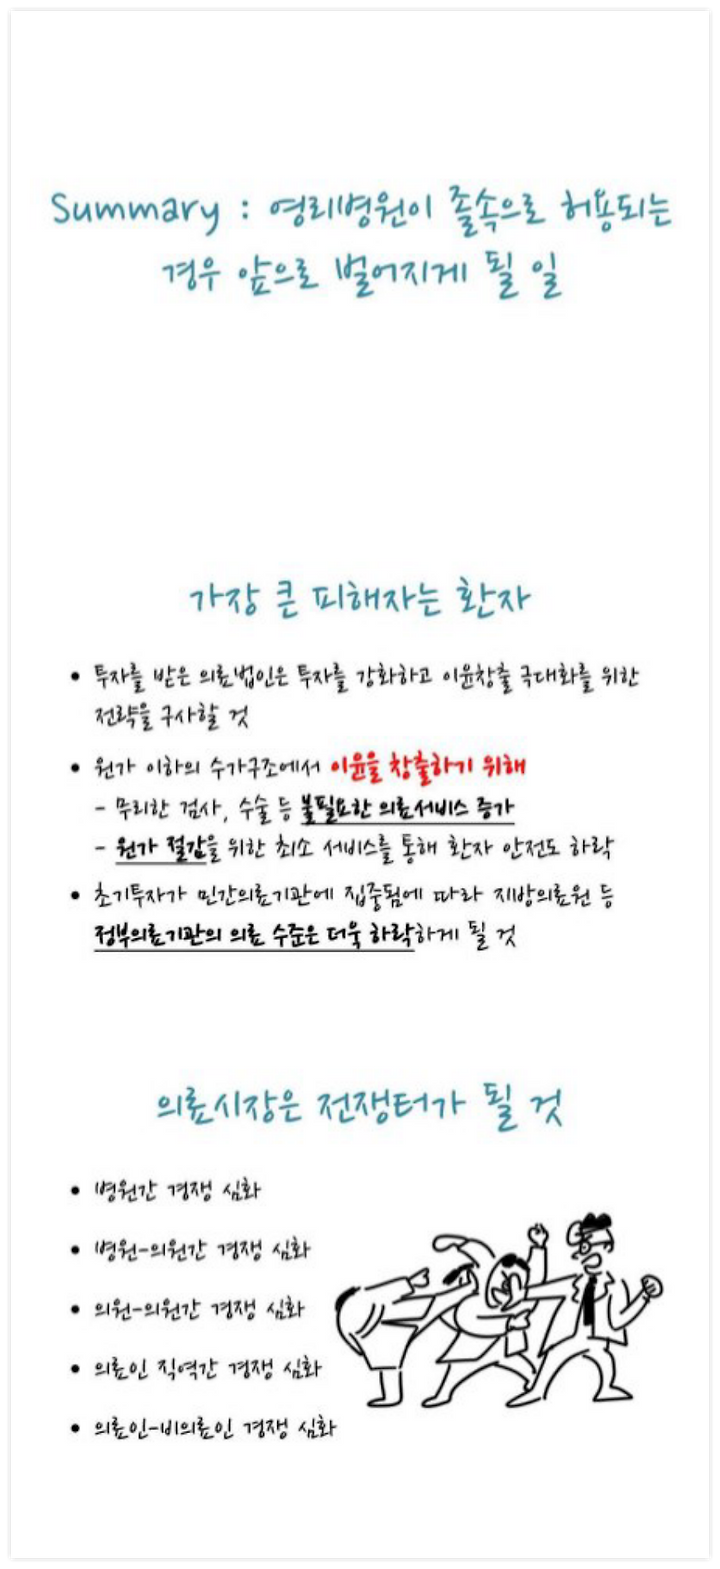 Summary : 영리병원이 졸속으로 허용되는
경우 앞으로 벌어지게 될 일
가장 큰 피해자는 환자
• 투자를 받은 의료법인은 투자를 강화하고 이윤창출 극대화를 위한
전략을 구사할 것
• 원가 이하의 수가구조에서 이윤을 창출하기 위해
- 무리한 검사, 수술 등 불필요한 의료서비스 증가
- 원가 절감을 위한 최소 서비스를 통해 환자 안전도 하락
• 초기투자가 민간의료기관에 집중됨에 따라 지방의료원 등
정부의료기관의 의료 수준은 더욱 하락하게 될 것
의료시장은 전쟁터가 될 것
• 병원간 경쟁 심화
• 병원-의원간 경쟁 심화
• 의원-의원간 경쟁 심화
• 의료인 직역간 경쟁 심화
• 의료인-비의료인 경쟁 심화